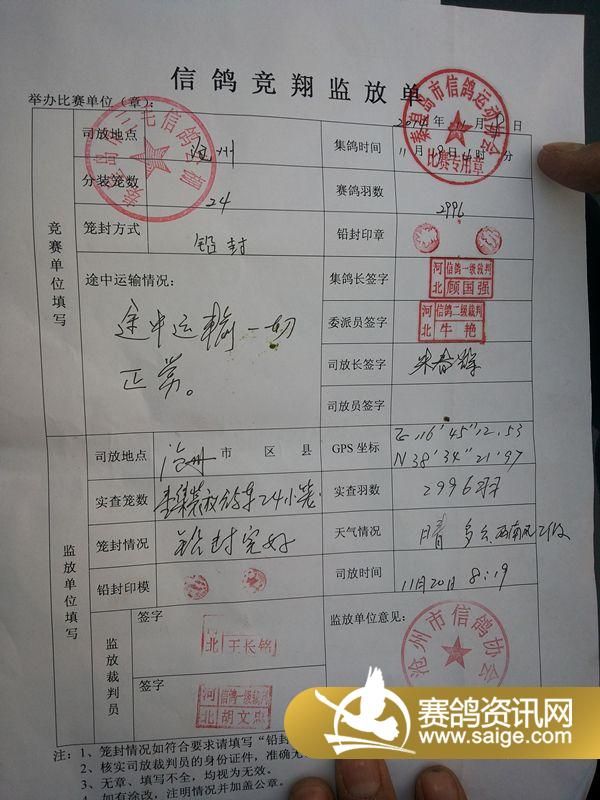 信鸽竞翔监放单
举办比赛单位（章）：
2014年11月19日
秦皇岛市信鸽运动协会
比赛专用章
司放地点 沧州 集鸽时间 11月19日 时 分
分装笼数 24 赛鸽羽数 2996
笼封方式 铅封 铅封印章
竞赛单位填写
途中运输情况：
途中运输一切
正常。
集鸽长签字 河北 信鸽一级裁判 顾国强
委派员签字 河北 信鸽二级裁判 牛艳
司放长签字
司放员签字
司放地点 沧州 市 区 县 GPS 坐标 E 116°45"12.53
N 38°34"21.97
实查笼数 24小笼 实查羽数 2996羽
笼封情况 铅封完好 天气情况 晴 多云 西南风
铅封印模 司放时间 11月20日 8:19
监放单位填写
监放裁判员
签字
河北 王长铭
签字
河北 信鸽一级裁判 胡文忠
监放单位意见：
沧州市信鸽协会
注：1、笼封情况如符合要求请填写“铅封
2、核实司放裁判员的身份证件，准确无
3、无章、填写不全，均视为无效。
4、如有涂改，注明情况并加盖公章。
赛鸽资讯网
www.saige.com